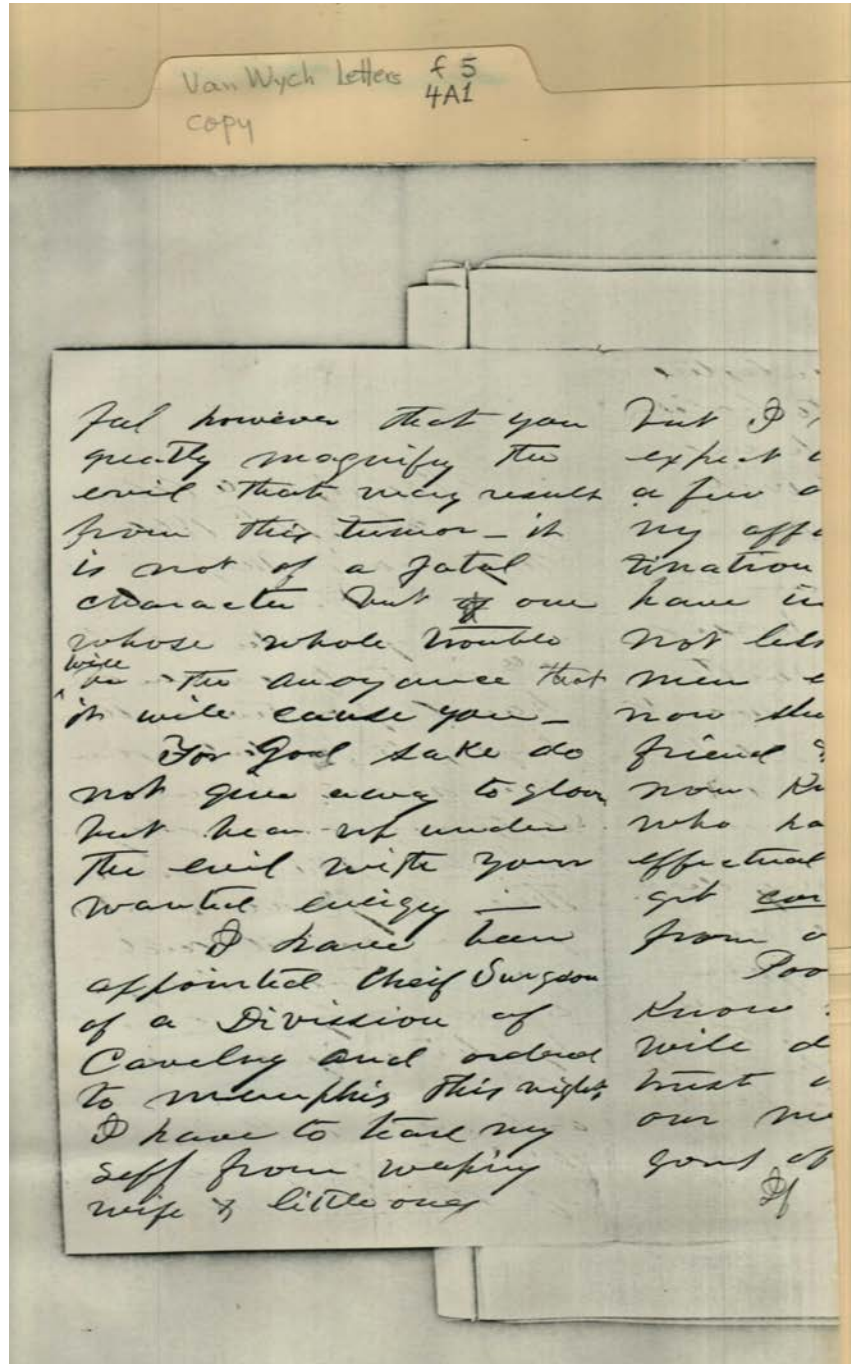 Van Wych Letters f 5
4A1
copy
feel however that you
greatly magnify the
evil that may result
from this tumor – it
is not of a fatal
character but of one
whose whole trouble
will
be the anoyance that
it will cause you –
For God sake do
not give away to gloom
but bear up under
the evil with your
wanted energy –
I have been
appointed Cheif Surgeon
of a Division of
Cavelry and ordered
to memphis this night,
I have to teare my
self from weeping
wife & little ones
but I
expect
a few
my aff
tination
have in
not let
men
now
friend
now Kn
who ha
effectual
get
from
Poo
Know
will d
trust
our me
gont of
If